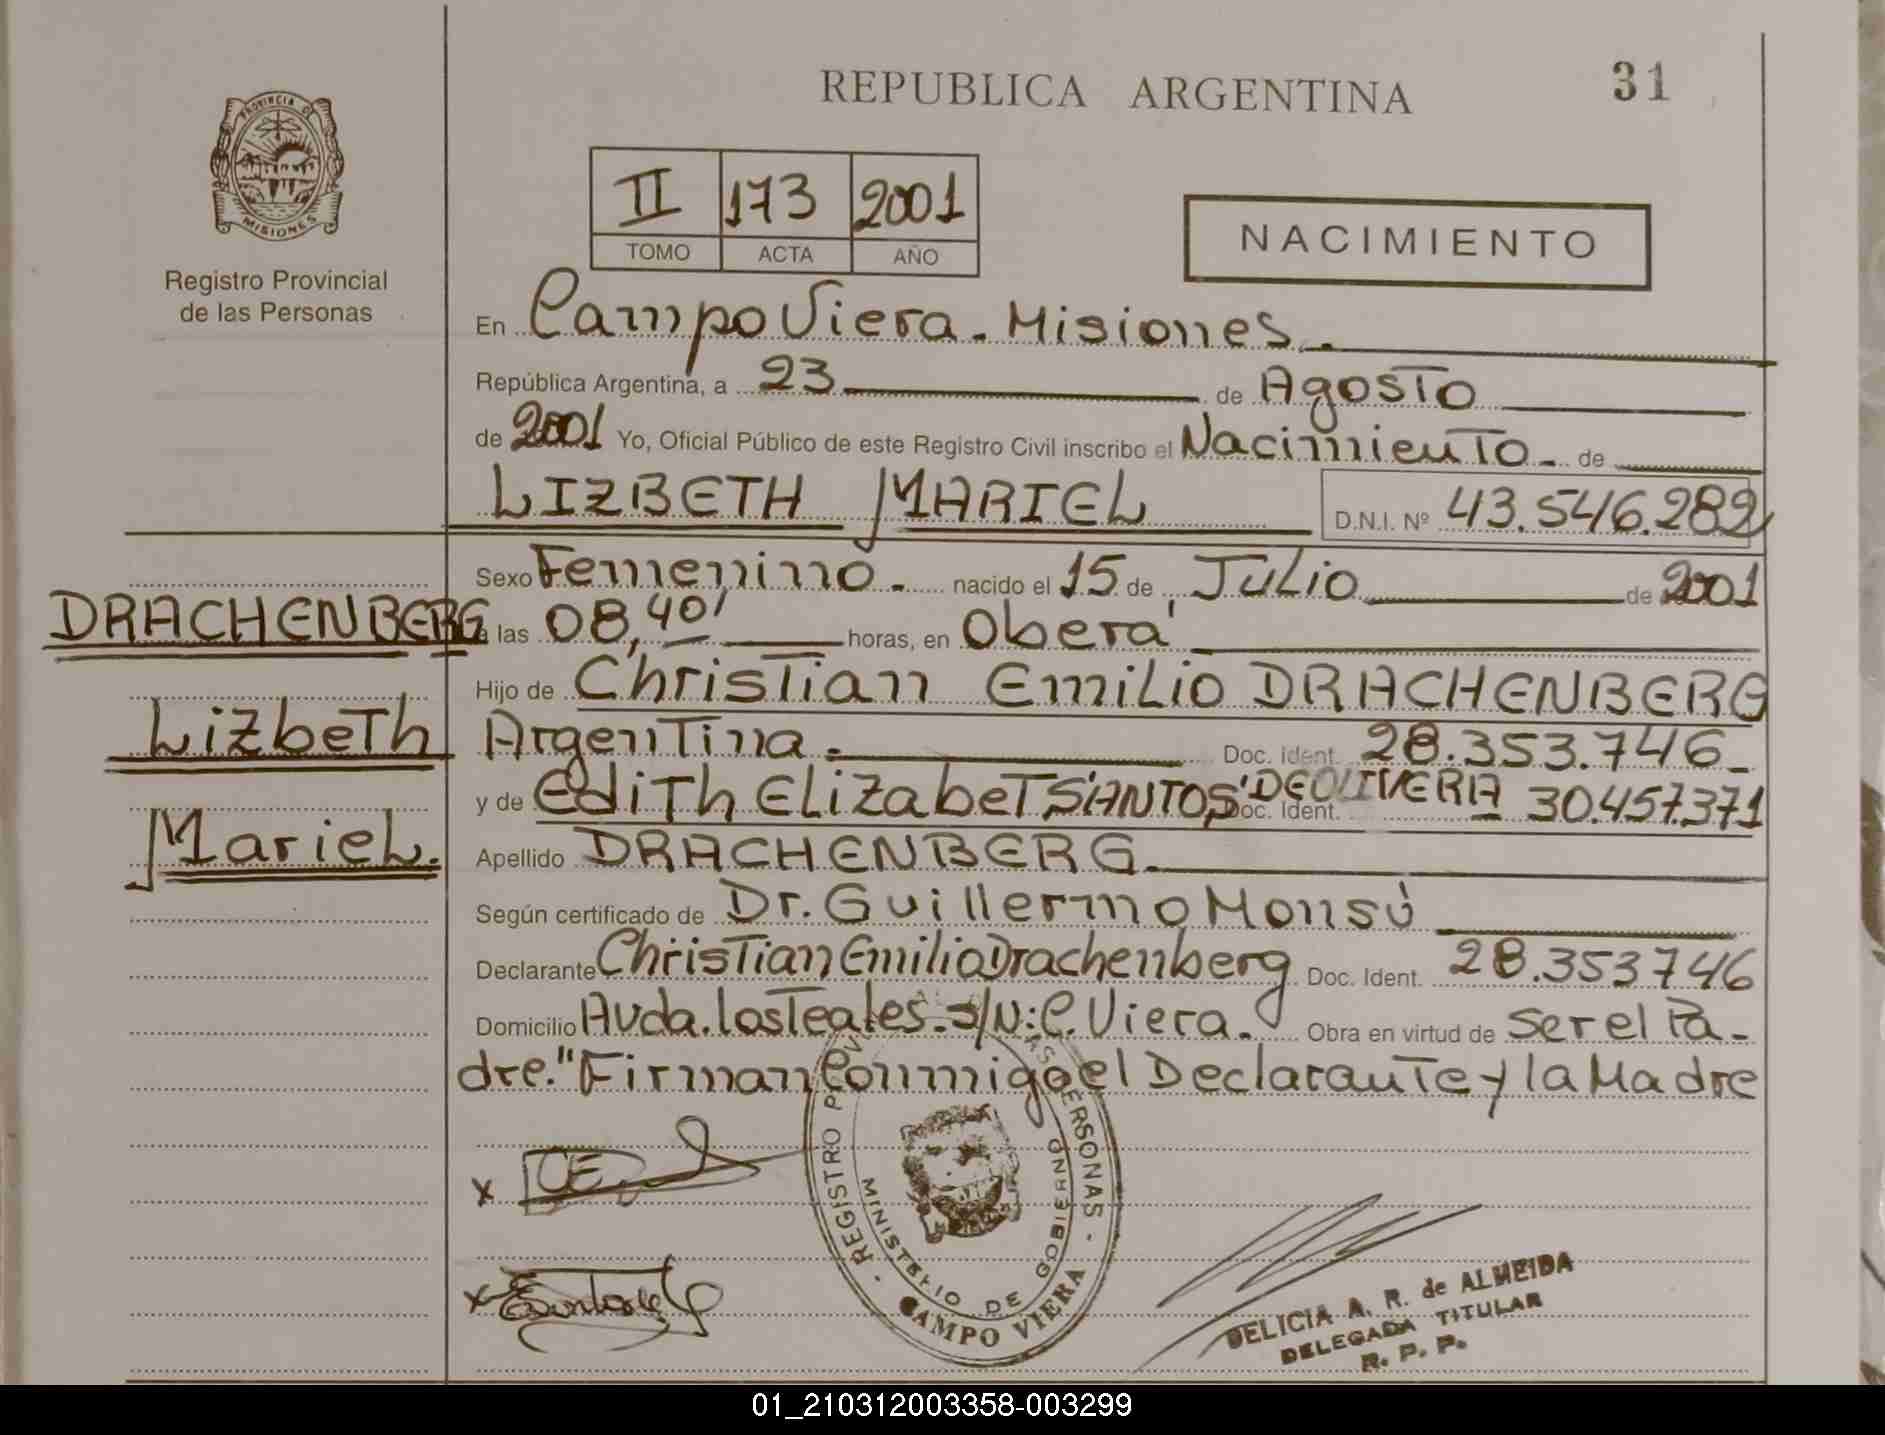 REPUBLICA ARGENTINA
31
PROVINCIA DE MISIONES
Registro Provincial
de las Personas
II 173 2001
TOMO ACTA AÑO
NACIMIENTO
En Campo Viera - Misiones.
República Argentina, a 23 de Agosto
de 2001 Yo, Oficial Público de este Registro Civil inscribo el Nacimiento de
LIZBETH MARIEL D.N.I. Nº 43.546.282
Sexo Femenino. nacido el 15 de Julio de 2001
DRACHENBERG
a las 08,40' horas, en Oberá
Hijo de Christian Emilio DRACHENBERG
Lizbeth
Argentina. Doc. Ident. 28.353.746
y de Edith Elizabet SANTOS DE OLIVERIA Doc. Ident. 30.457.371
Mariel.
Apellido DRACHENBERG
Según certificado de Dr. Guillermo Monsú
Declarante Christian Emilio Drachenberg Doc. Ident. 28.353746
Domicilio Avda. los Teales. s/N: C. Viera. Obra en virtud de ser el Pa-
dre." Firman Conmigo el Declarante y la Madre
x
x
REGISTRO PERSONAS
MINISTERIO DE GOBIERNO
CAMPO VIERA
DELICIA A. R. de ALMEIDA
DELEGADA TITULAR
R. P. P.
01_210312003358-003299